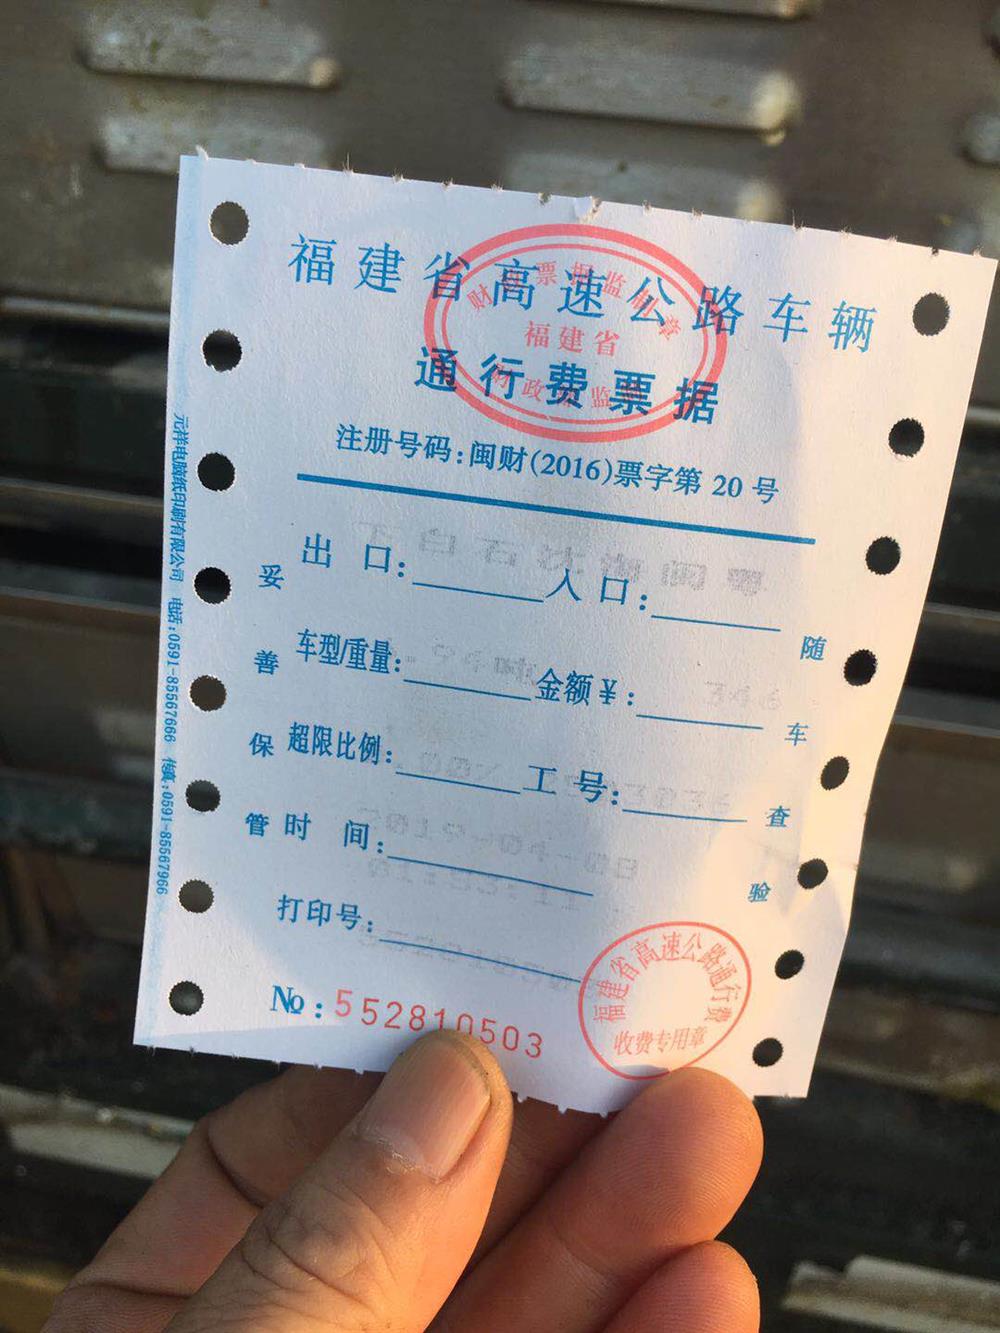 福建省高速公路车辆
通行费票据
福建省
注册号码:闽财(2016)票字第 20 号
出 口: 入口:
车型/重量: 金额¥: 346
超限比例: 工 号:
时 间: 2019-04-08
打印号:
№:552810503
妥善保管
随车查验
福建省高速公路通行费
收费专用章
元祥电脑纸印刷有限公司 电话:0591-85567666 传真:0591-85567966